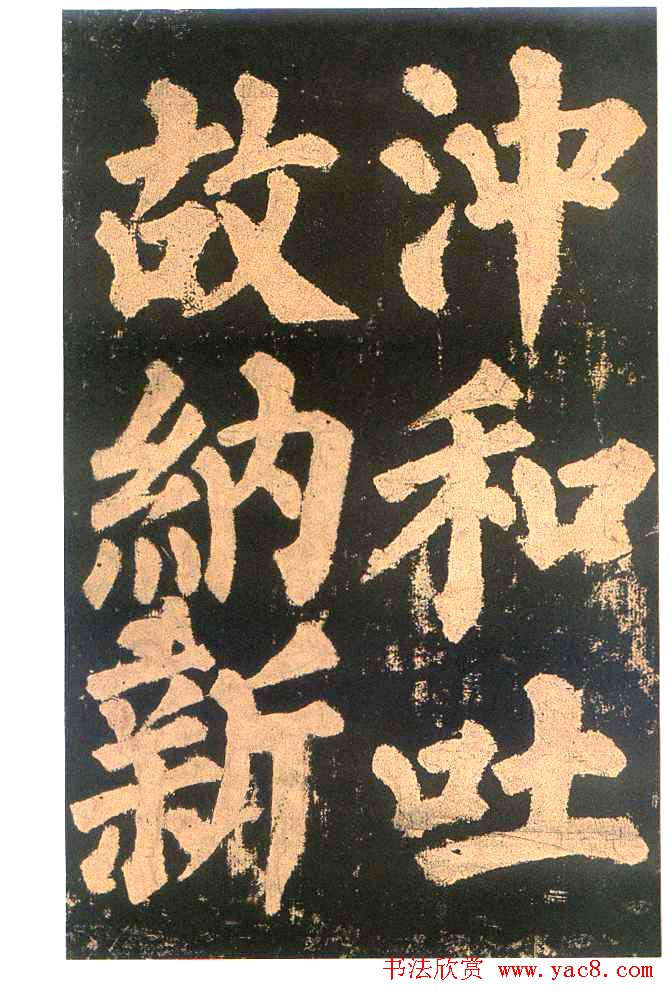 沖和吐
故納新
书法欣赏 www.yac8.com